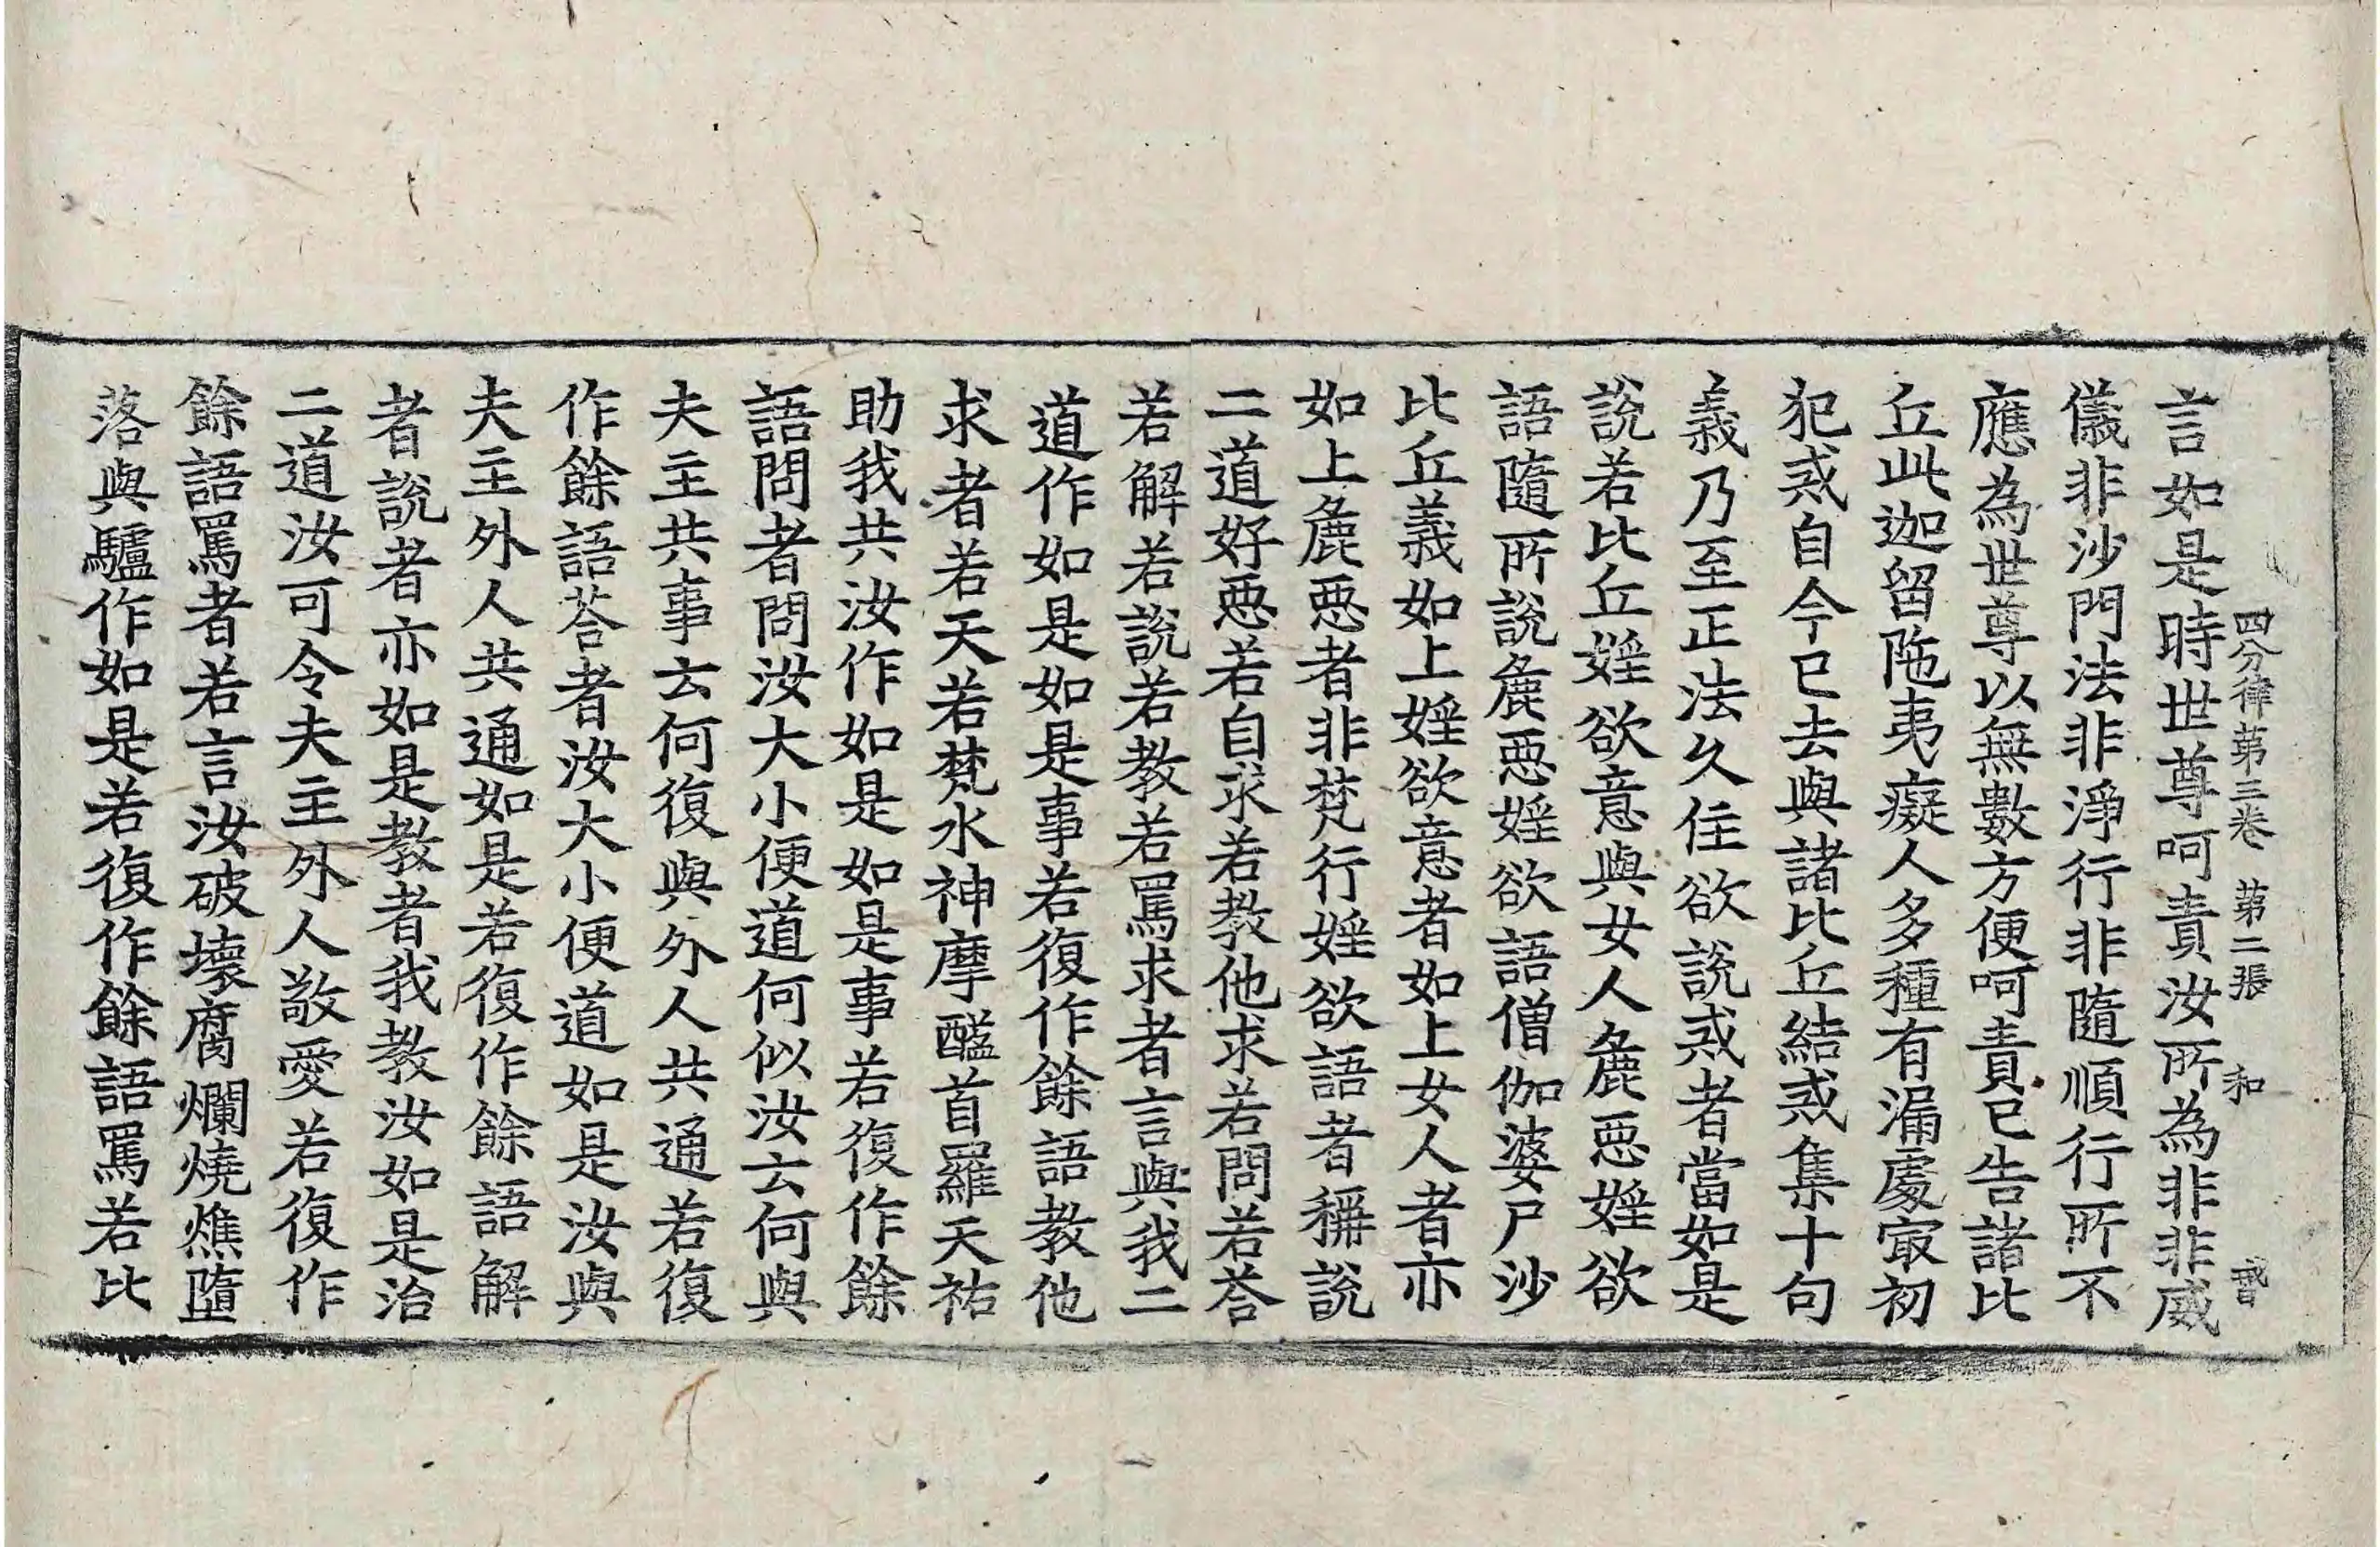 四分律第三卷 第二張 和
言如是時世尊呵責汝所為非非威
儀非沙門法非淨行非隨順行所不
應為世尊以無數方便呵責已告諸比
丘此迦留陁夷癡人多種有漏處㝡初
犯戒自今已去與諸比丘結戒集十句
義乃至正法久住欲說戒者當如是
說若比丘婬欲意與女人麁惡婬欲
語隨所說麁惡婬欲語僧伽婆尸沙
比丘義如上婬欲意者如上女人者亦
如上麁惡者非梵行婬欲語者稱說
二道好惡若自求若教他求若問若荅
若解若說若教若罵求者言與我二
道作如是如是事若復作餘語教他
求者若天若梵水神摩醯首羅天祐
助我共汝作如是如是事若復作餘
語問者問汝大小便道何似汝云何與
夫主共事云何復與外人共通若復
作餘語荅者汝大小便道如是汝與
夫主外人共通如是若復作餘語解
者說者亦如是教者我教汝如是治
二道汝可令夫主外人敬愛若復作
餘語罵者若言汝破壞腐爛燒燋墮
落與驢作如是若復作餘語罵若比